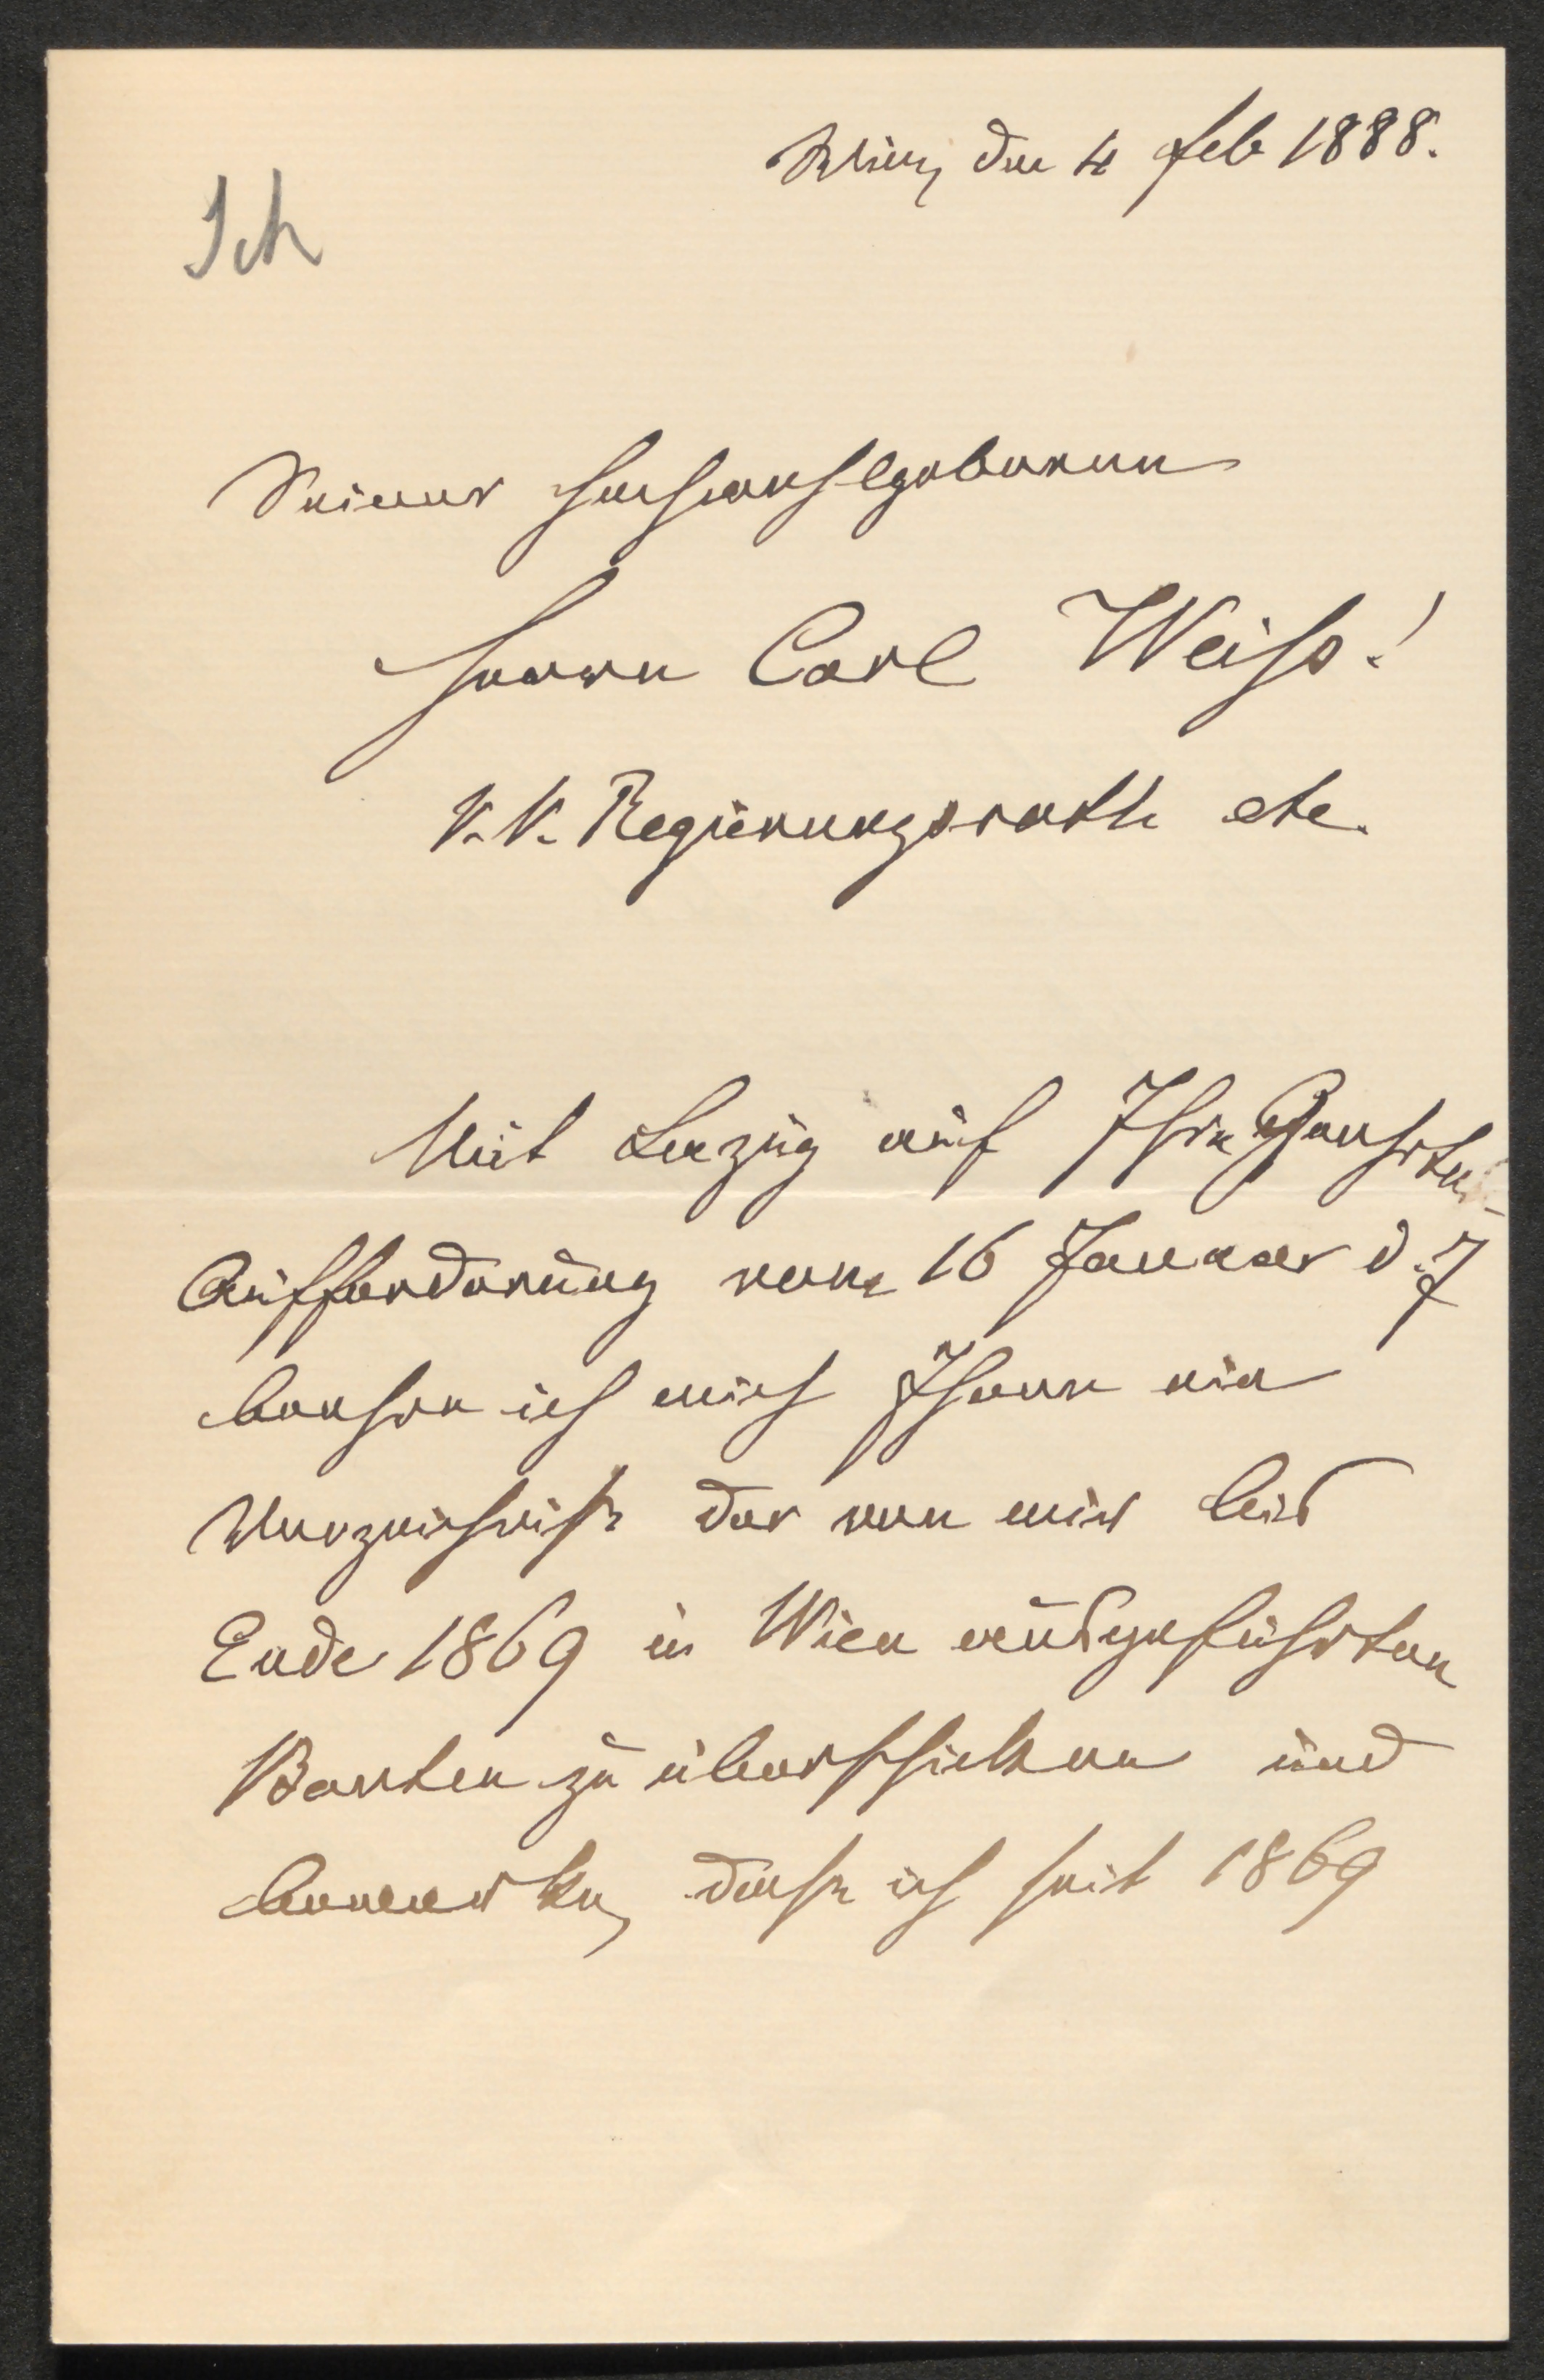 Wien, den 4 Feb 1888.
Ich
Seiner Hochwohlgeboren
Herrn Carl Weiß!
K. K. Regierungsrath etc.
Mit Bezug auf Ihre Geehrte
Aufforderung vom 16 Januar d. J
beehre ich mich Ihnen ein
Verzeichniß der von mir bis
Ende 1869 in Wien ausgeführten
Bauten zu überschicken und
bemerke, daß ich seit 1869